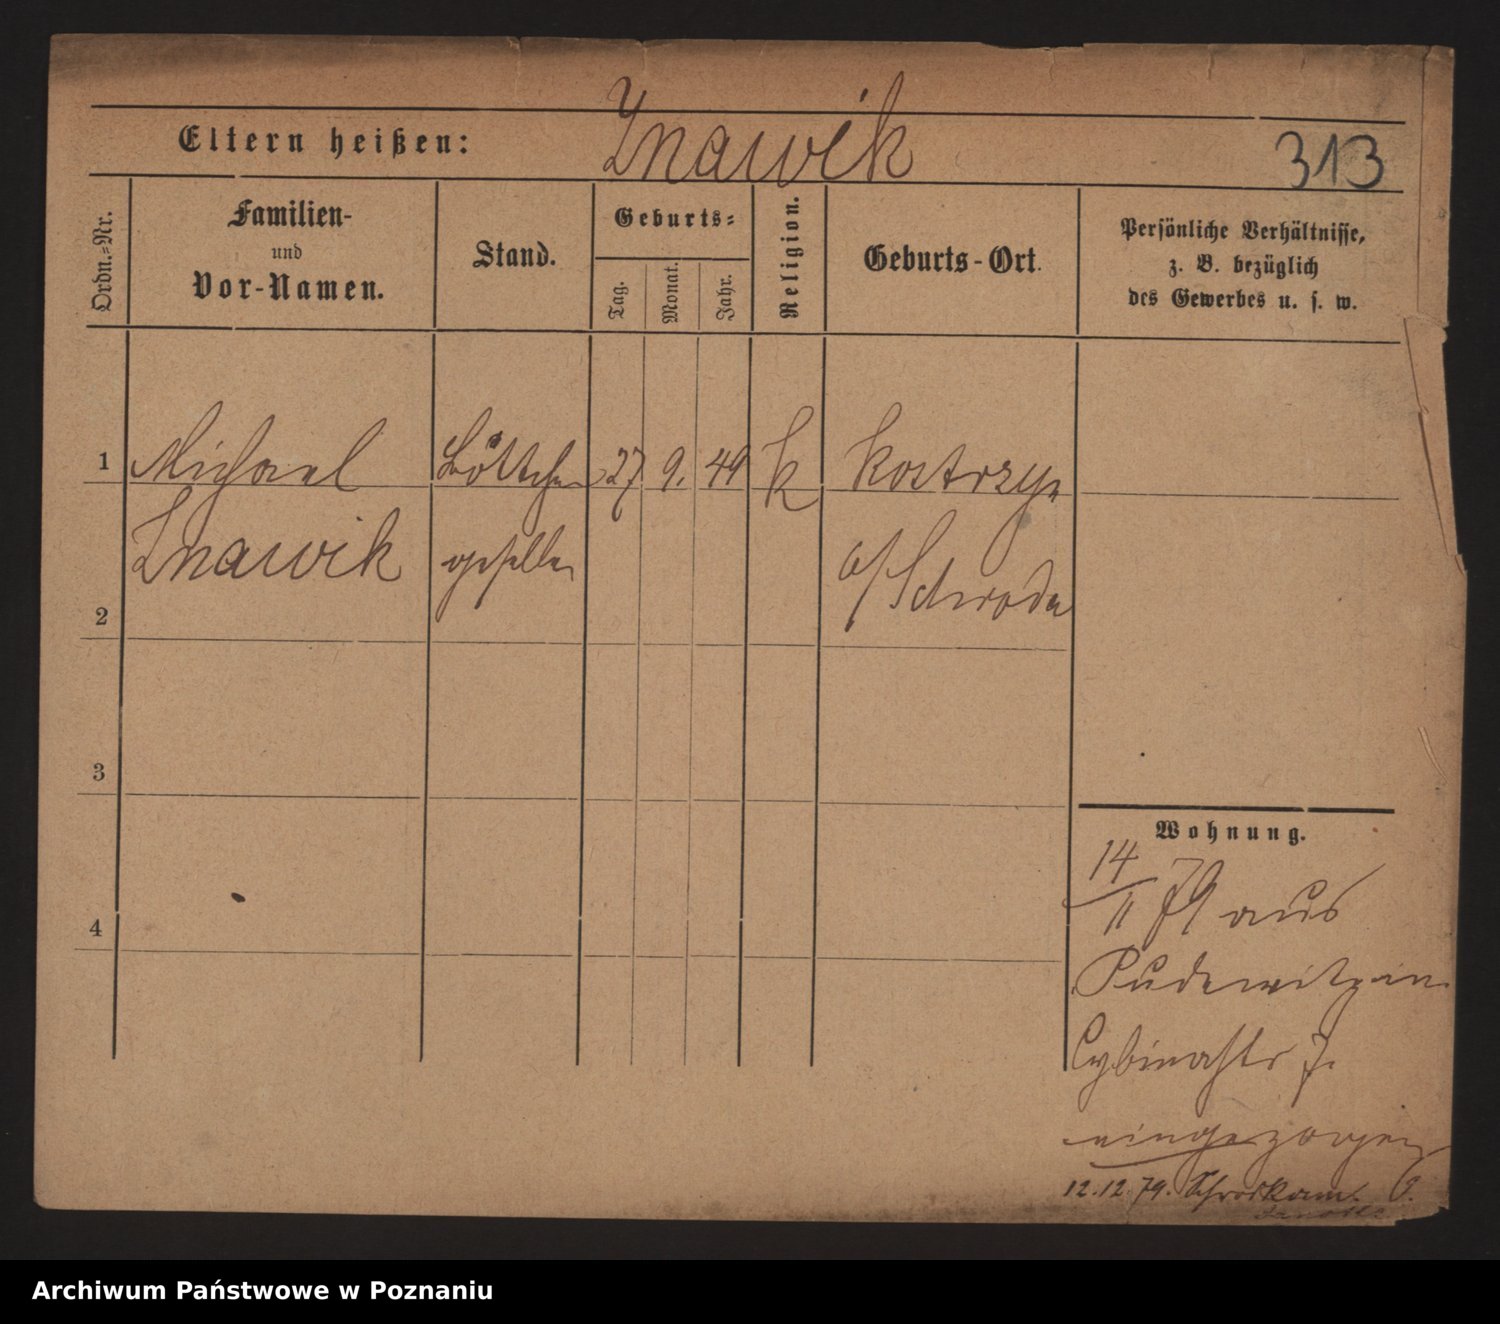 Eltern heißen: Znawik 313
Ordn.-Nr.
Familien-
und
Vor-Namen.
Stand.
Geburts-
Tag.
Monat.
Jahr.
Religion.
Geburts-Ort.
Persönliche Verhältnisse,
z. B. bezüglich
des Gewerbes u. s. w.
1 Michael Böttcher 27 9. 49 k Kostrzyn
Znawik geselle a/Schroda
2
3
4
Wohnung.
14/11 79 aus
Pudewitz in
Cybinastr 7.
eingezogen
12.12.79.
Archiwum Państwowe w Poznaniu